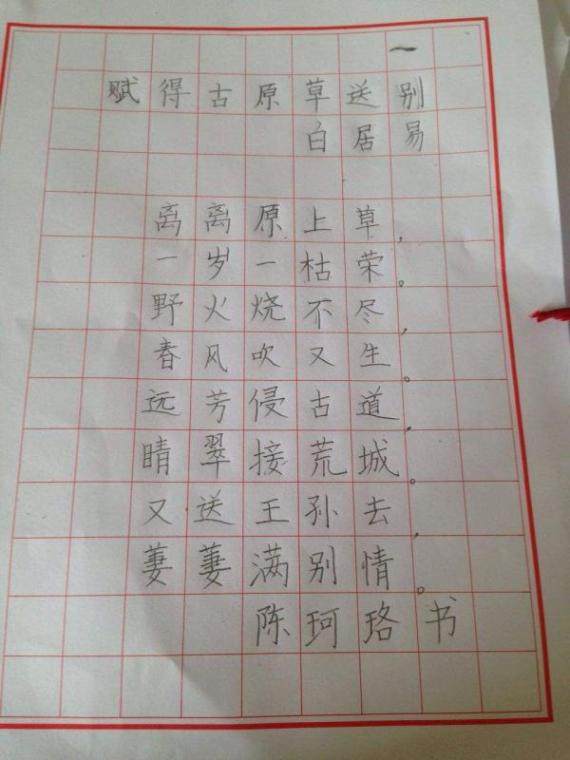 一
赋得古原草送别
白居易
离离原上草，
一岁一枯荣。
野火烧不尽，
春风吹又生。
远芳侵古道，
晴翠接荒城。
又送王孙去，
萋萋满别情。
陈珂珞书